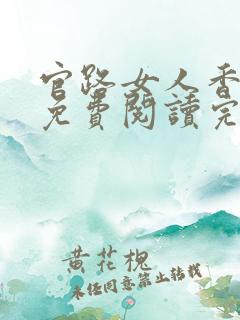 官路女人香
免費閱讀完
黄花槐
未经同意禁止转载